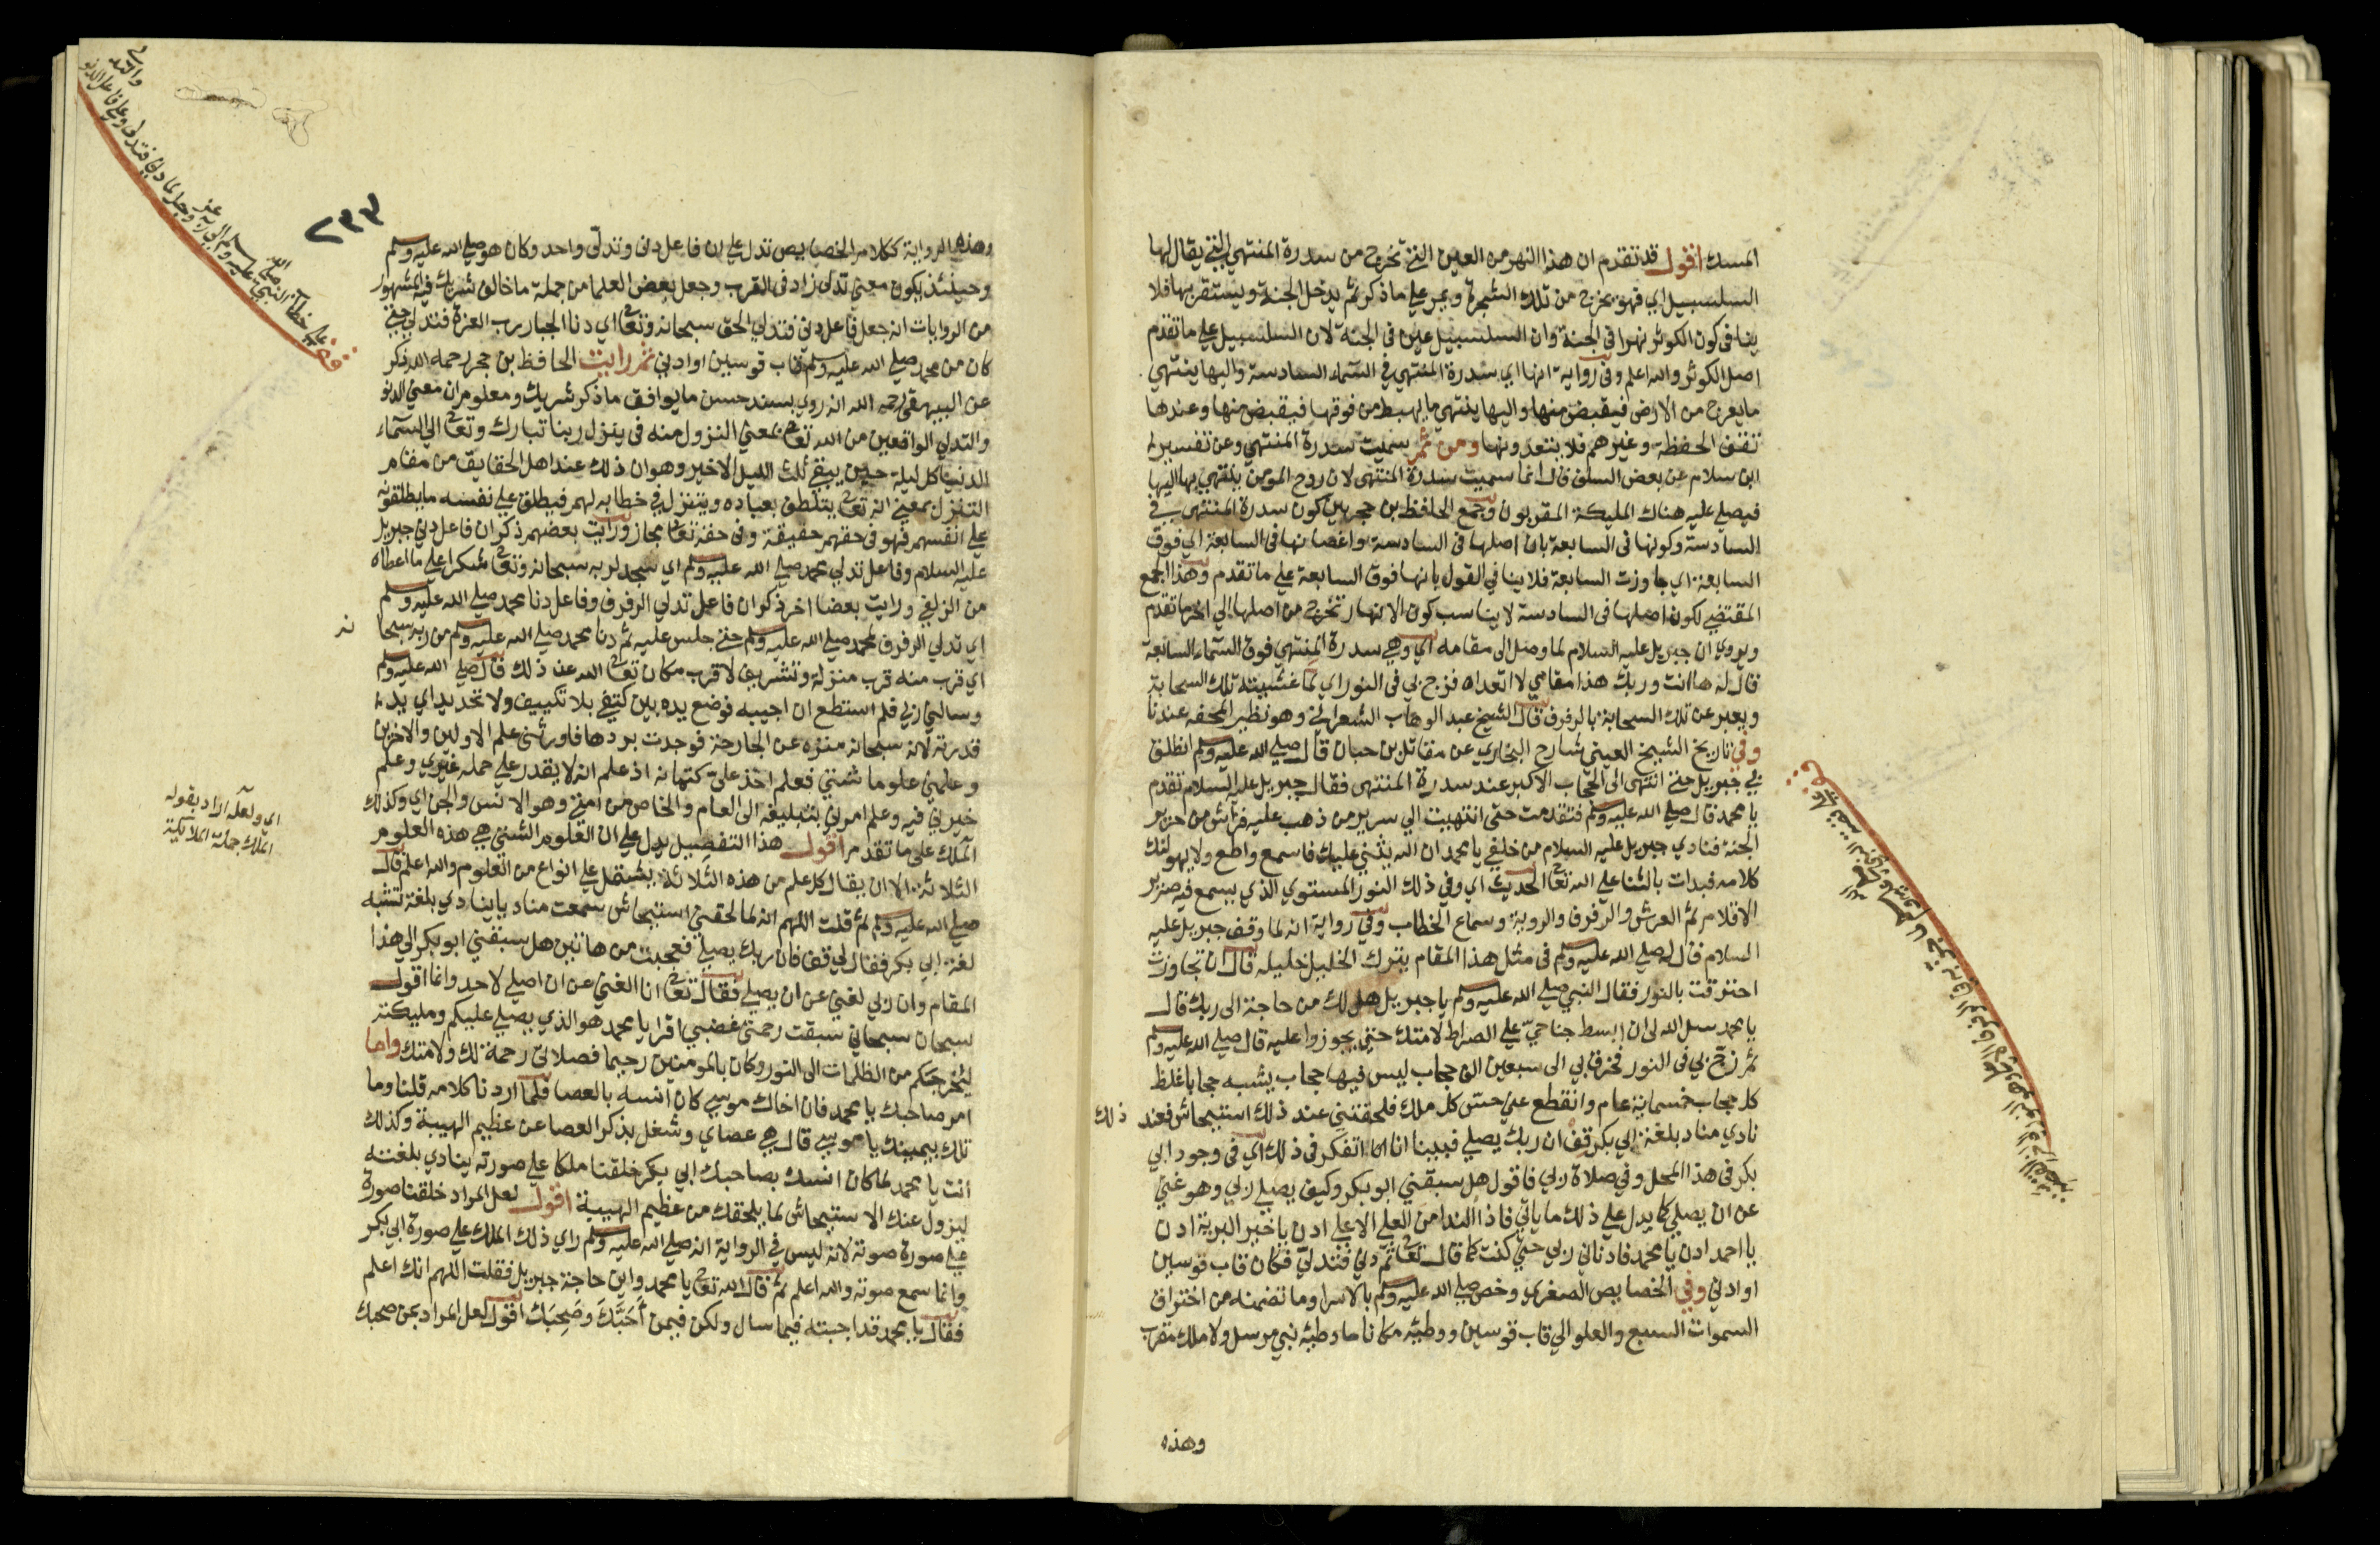 المسك اقول قد تقدم ان هذا النهر من العين التي تخرج من سدرة المنتهى التي يقال لها
السلسبيل اي فهو يخرج من تلك الشجرة ويمر علي ما ذكر ثم يدخل الجنة ويستقر بها فلا
ينافى كون الكوثر نهرا في الجنة وان السلسبيل عين فى الجنة لان السلسبيل علي ما تقدم
اصل الكوثر والله اعلم وفى رواية انها اى سدرة المنتهي في السماء السادسة واليها ينتهي
ما يعرج من الارض فيقبض منها واليها ينتهي ما يهبط من فوقها فيقبض منها وعندها
تقف الحفظة وغيرهم فلا يتعدونها ومن ثم سميت سدرة المنتهي وعن تفسير
ابن سلام عن بعض السلف قال انما سميت سدرة المنتهى لان روح المومن ينتهي بها اليها
فيصلي عليه هناك المليكة المقربون وجمع الحافظ بن حجر بين كون سدرة المنتهى في
السادسة وكونها فى السابعة بان اصلها فى السادسة واغصانها فى السابعة اي فوق
السابعة اي جاوزت السابعة فلا ينافي القول بانها فوق السابعة علي ما تقدم وهذا الجمع
المقتضي لكون اصلها فى السادسة لا يناسب كون الانهار تخرج من اصلها الي اخر ما تقدم
ويروي ان جبريل عليه السلام لما وصل الى مقامه اي وهي سدرة المنتهي فوق السماء السابعة
قال له ها انت وربك هذا مقامي لا اتعداه فزج بي فى النور اي لما غشيته تلك السحابة
ويعبر عن تلك السحابة بالرفرف قال الشيخ عبد الوهاب الشعراني وهو نظير المحفة عندنا
وفي تاريخ الشيخ العيني شارح البخاري عن مقاتل بن حبان قال صلي الله عليه وسلم انطلق
بي جبريل حتى انتهى الى الحجاب الاكبر عند سدرة المنتهى فقال جبريل عليه السلام تقدم
يا محمد قال صلي الله عليه وسلم فتقدمت حتى انتهيت الي سرير من ذهب عليه فراش من حرير
الجنة فنادي جبريل عليه السلام من خلفي يا محمد ان الله يثني عليك فاسمع واطع ولا يهولنك
كلامه فبدات بالثنا علي الله تعالى الحديث اي وفي ذلك النور المستوي الذي يسمع فيه صرير
الاقلام ثم العرش والرفرف والروية وسماع الخطاب وفي رواية انه لما وقف جبريل عليه
السلام قال له صلي الله عليه وسلم فى مثل هذا المقام يترك الخليل خليله قال ان تجاوزت
احترقت بالنور فقال النبي صلي الله عليه وسلم يا جبريل هل لك من حاجة الى ربك قال
يا محمد سل الله لى ان ابسط جناحي علي الصراط لامتك حتي يجوزوا عليه قال صلي الله عليه وسلم
ثم زج بي فى النور فخرق بي الى سبعين الف حجاب ليس فيها حجاب يشبه حجابا غلظ
كل حجاب خمسماية عام وانقطع عني حس كل ملك فلحقني عند ذلك استيحاش فعند ذلك
نادي مناد بلغة ابي بكر قف ان ربك يصلي فبينا انا اتفكر فى ذلك اي فى وجود ابي
بكر فى هذا المحل وفي صلاة ربي فاقول هل سبقني ابو بكر وكيف يصلي ربي وهو غني
عن ان يصلي كما يدل علي ذلك ما ياتي فاذا النداء من العلي الاعلي ادن يا خير البرية ادن
يا احمد ادن يا محمد فادناني ربي حتي كنت كما قال تعالى ثم دني فتدلى فكان قاب قوسين
او ادني وفي الخصايص الصغري وخص صلي الله عليه وسلم بالاسرا وما تضمنه من اختراق
السموات السبع والعلو الي قاب قوسين ووطيه مكانا ما وطيه نبي مرسل ولا ملك مقرب
وهذه
٢٣٣
وهذه الرواية ككلام الخصايص تدل علي ان فاعل دنى وتدلى واحد وكان هو صلي الله عليه وسلم
وحينئذ يكون معني تدلى زاد فى القرب وجعل بعض العلما من جملة ما خالف شريك فيه المشهور
من الروايات انه جعل فاعل دني فتدلي الحق سبحانه وتعالى اي دنا الجبار رب العزة فتدلي حتي
كان من محمد صلي الله عليه وسلم قاب قوسين او ادني ثم رايت الحافظ بن حجر رحمه الله ذكر
عن البيهقي رحمه الله انه روي بسند حسن ما يوافق ما ذكر شريك ومعلوم ان معني الدنو
والتدلي الواقعين من الله تعالى بمعني النزول منه فى ينزل ربنا تبارك وتعالى الي السماء
الدنيا كل ليلة حين يبقي ثلث الليل الاخير وهو ان ذلك عند اهل الحقايق من مقام
التنزل بمعني انه تعالى يتلطف بعباده ويتنزل في خطابه لهم فيطلق علي نفسه ما يطلقونه
علي انفسهم فهو فى حقهم حقيقة وفى حقه تعالى مجاز ورايت بعضهم ذكر ان فاعل دني جبريل
عليه السلام وفاعل تدلي محمد صلي الله عليه وسلم اي سجد لربه سبحانه وتعالى شكرا علي ما اعطاه
من الزلفي ورايت بعضا اخر ذكر ان فاعل تدلي الرفرف وفاعل دنا محمد صلي الله عليه وسلم
اي تدلي الرفرف لمحمد صلي الله عليه وسلم حتي جلس عليه ثم دنا محمد صلي الله عليه وسلم من ربه سبحا نه
اي قرب منه قرب منزلة وتشريف لا قرب مكان تعالى الله عن ذلك قال صلي الله عليه وسلم
وسالني ربي فلم استطع ان اجيبه فوضع يده بين كتفي بلا تكييف ولا تحديد اي يد
قدرته لانه سبحانه منزه عن الجارحة فوجدت بردها فاورثني علم الاولين والاخرين
وعلمني علوما شتي فعلم اخذ علي كتمانه اذ علم انه لا يقدر علي حمله غيري وعلم
خيرني فيه وعلم امرني بتبليغه الى العام والخاص من امتي وهو الانس والجن اي وكذلك
الملك على ما تقدم اقول هذا التفصيل يدل علي ان العلوم الشتي هي هذه العلوم
الثلاثة الا ان يقال كل علم من هذه الثلاثة يشتمل علي انواع من العلوم والله اعلم قال
صلي الله عليه وسلم ثم قلت اللهم انه لما لحقني استيحاش سمعت مناديا ينادي بلغة تشبه
لغة ابي بكر فقال لي قف فان ربك يصلي فعجبت من هاتين هل سبقني ابو بكر الي هذا
المقام وان ربي لغني عن ان يصلي فقال تعالى انا الغني عن ان اصلي لاحد وانما اقول
سبحان سبحاني سبقت رحمتي غضبي اقرا يا محمد هو الذي يصلي عليكم ومليكته
ليخرجكم من الظلمات الى النور وكان بالمومنين رحيما فصلاتي رحمة لك ولامتك واما
امر صاحبك يا محمد فان اخاك موسي كان انسه بالعصا فلما اردنا كلامه قلنا وما
تلك بيمينك يا موسي قال هي عصاي وشغل بذكر العصا عن عظيم الهيبة وكذلك
انت يا محمد لما كان انسك بصاحبك ابي بكر خلقنا ملكا علي صورته ينادي بلغته
ليزول عنك الاستيحاش لما يلحقك من عظيم الهيبة اقول لعل المراد خلقنا صورة
علي صورة صوته لانه ليس في الرواية انه صلي الله عليه وسلم راي ذلك الملك علي صورة ابي بكر
وانما سمع صوته والله اعلم ثم قال الله تعالى يا محمد واين حاجة جبريل فقلت اللهم انك اعلم
فقال يا محمد قد اجبته فيما سال ولكن فيمن أحبَّكَ وصَحِبَك اقول لعل المراد بمن صحبك
اي ولعله اراد بقوله
الملك جملة الملايكة